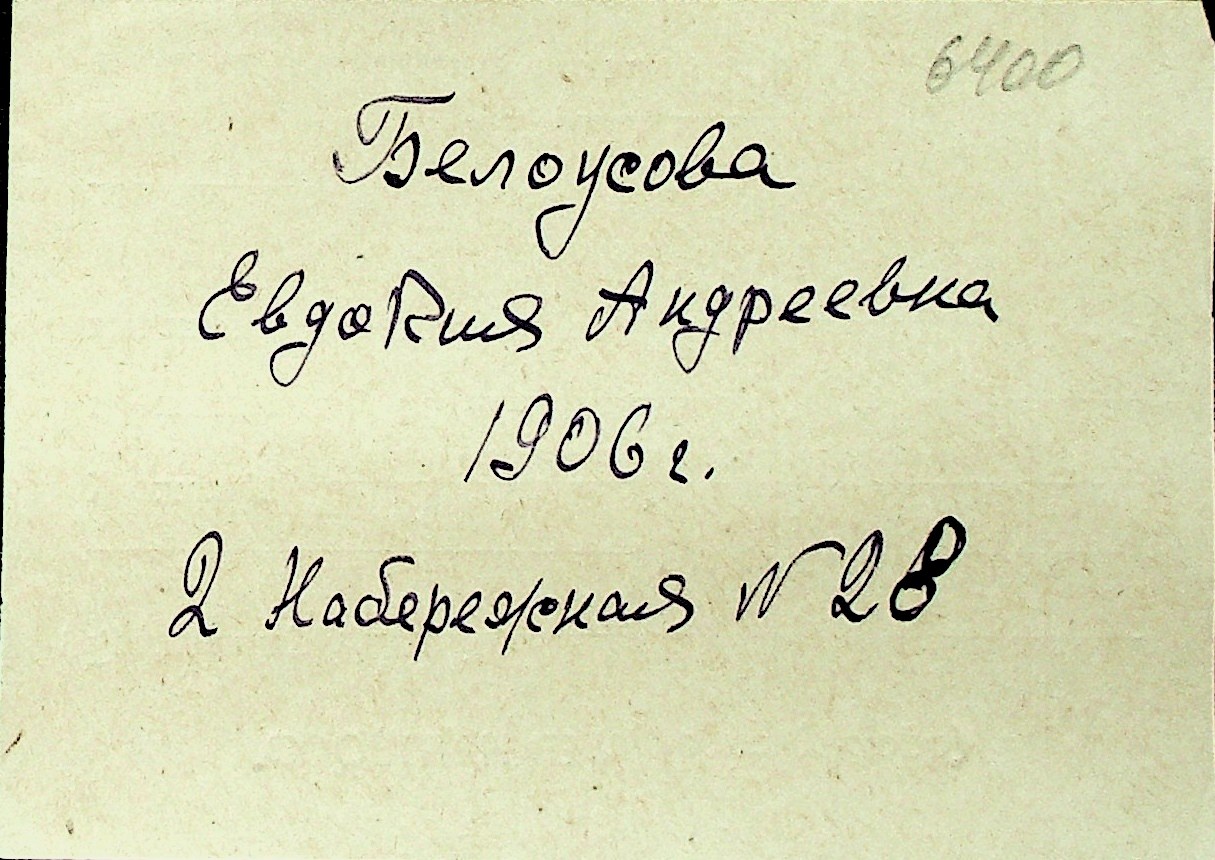 6400
Белоусова
Евдокия Андреевна
1906 г.
2 Набережная N 28